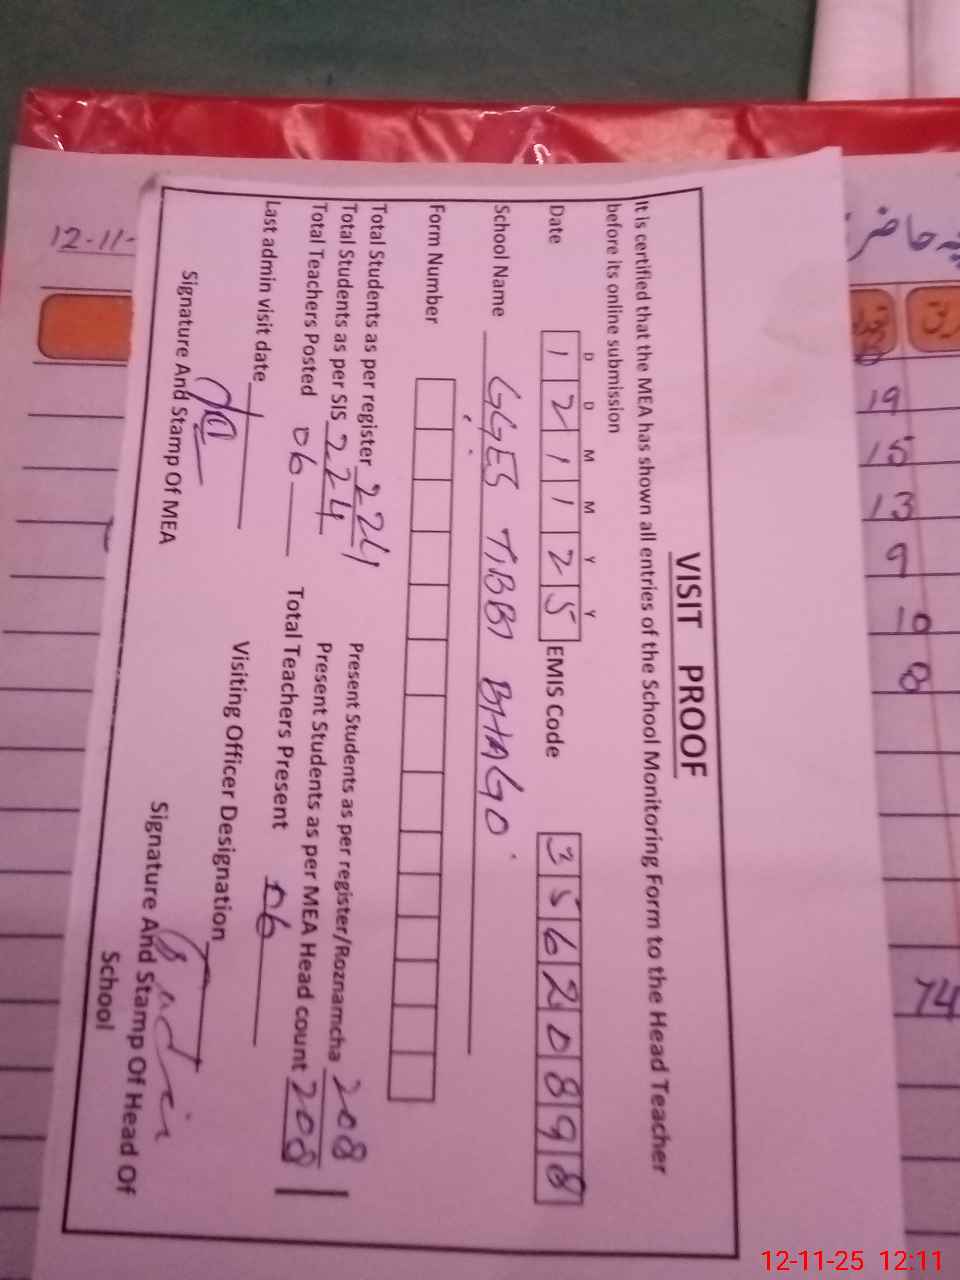 VISIT PROOF
It is certified that the MEA has shown all entries of the School Monitoring Form to the Head Teacher
before its online submission
D D M M Y Y
Date 1 2 1 1 2 5 EMIS Code 3 5 6 2 0 8 9 8
School Name GGES TIBBI BHAGO
Form Number
Total Students as per register 224 Present Students as per register/Roznamcha 208
Total Students as per SIS 224 Present Students as per MEA Head count 208
Total Teachers Posted 06 Total Teachers Present 06
Last admin visit date Visiting Officer Designation
Signature And Stamp Of MEA Signature And Stamp Of Head Of
School
12-11-
حاضر
19
15
13
9
10
8
74
12-11-25 12:11